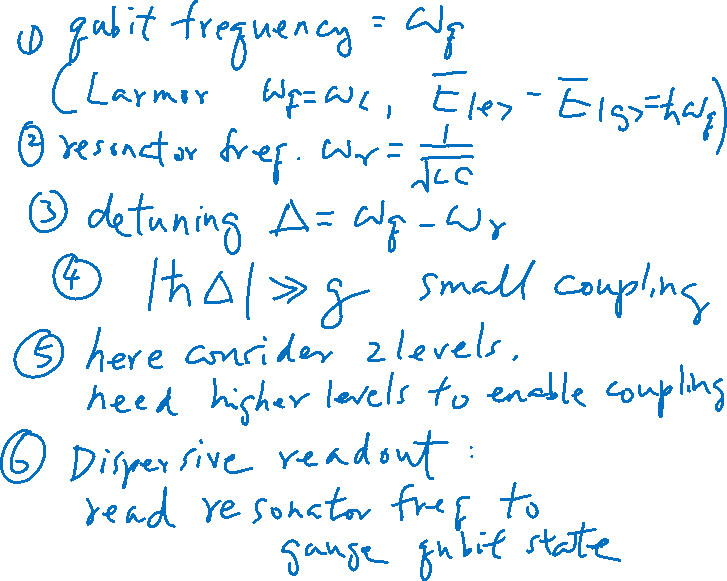 ① qubit frequency = ωq
(Larmor ωq=ωL, E|e> - E|g>=ħωq)
② resonator freq. ωr = 1/√LC
③ detuning Δ = ωq - ωr
④ |ħΔ| ≫ g small coupling
⑤ here consider 2 levels.
need higher levels to enable coupling
⑥ Dispersive readout :
read resonator freq to
gauge qubit state